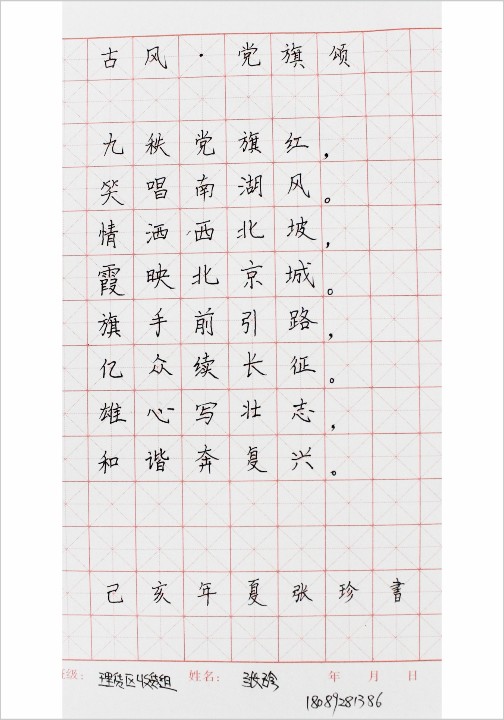 古风·党旗颂
九秩党旗红，
笑唱南湖风。
情洒西北坡，
霞映北京城。
旗手前引路，
亿众续长征。
雄心写壮志，
和谐奔复兴。
己亥年夏张珍書
班级：理货区收货组 姓名：张珍 年 月 日
18089281386